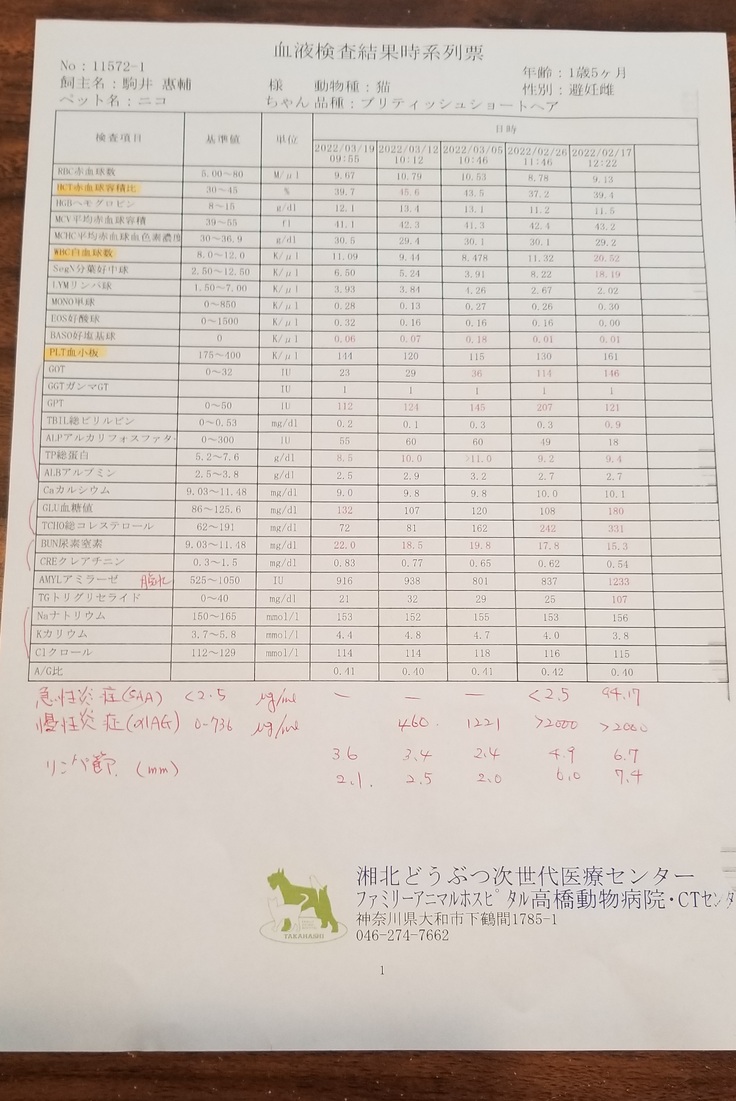 血液検査結果時系列票
No : 11572-1
年齢 : 1歳5ヶ月
飼主名 : 駒井 惠輔 様 動物種 : 猫 性別 : 避妊雌
ペット名 : ニコ ちゃん 品種 : ブリティッシュショートヘア
検査項目 基準値 単位 日時
2022/03/19 2022/03/12 2022/03/05 2022/02/26 2022/02/17
09:55 10:12 10:46 11:46 12:22
RBC赤血球数 5.00～80 M/μl 9.67 10.79 10.53 8.78 9.13
HCT赤血球容積比 30～45 % 39.7 45.6 43.5 37.2 39.4
HGBヘモグロビン 8～15 g/dl 12.1 13.4 13.1 11.2 11.5
MCV平均赤血球容積 39～55 fl 41.1 42.3 41.3 42.4 43.2
MCHC平均赤血球血色素濃度 30～36.9 g/dl 30.5 29.4 30.1 30.1 29.2
WBC白血球数 8.0～12.0 K/μl 11.09 9.44 8.478 11.32 20.52
SegN分葉好中球 2.50～12.50 K/μl 6.50 5.24 3.91 8.22 18.19
LYMリンパ球 1.50～7.00 K/μl 3.93 3.84 4.26 2.67 2.02
MONO単球 0～850 K/μl 0.28 0.13 0.27 0.26 0.30
EOS好酸球 0～1500 K/μl 0.32 0.16 0.16 0.16 0.00
BASO好塩基球 0 K/μl 0.06 0.07 0.18 0.01 0.01
PLT血小板 175～400 K/μl 144 120 115 130 161
GOT 0～32 IU 23 29 36 114 146
GGTガンマGT IU 1 1 1 1 1
GPT 0～50 IU 112 124 145 207 121
TBIL総ビリルビン 0～0.53 mg/dl 0.2 0.1 0.3 0.3 0.9
ALPアルカリフォスファタ- 0～300 IU 55 60 60 49 18
TP総蛋白 5.2～7.6 g/dl 8.5 10.0 >11.0 9.2 9.4
ALBアルブミン 2.5～3.8 g/dl 2.5 2.9 3.2 2.7 2.7
Caカルシウム 9.03～11.48 mg/dl 9.0 9.8 9.8 10.0 10.1
GLU血糖値 86～125.6 mg/dl 132 107 120 108 180
TCHO総コレステロール 62～191 mg/dl 72 81 162 242 331
BUN尿素窒素 9.03～11.48 mg/dl 22.0 18.5 19.8 17.8 15.3
CREクレアチニン 0.3～1.5 mg/dl 0.83 0.77 0.65 0.62 0.54
AMYLアミラーゼ 525～1050 IU 916 938 801 837 1233
TGトリグリセライド 0～40 mg/dl 21 32 29 25 107
Naナトリウム 150～165 mmol/l 153 152 155 153 156
Kカリウム 3.7～5.8 mmol/l 4.4 4.8 4.7 4.0 3.8
Clクロール 112～129 mmol/l 114 114 118 116 115
A/G比 0.41 0.40 0.41 0.42 0.40
急性炎症(SAA) <2.5 μg/ml － － － <2.5 94.17
慢性炎症(α1AG) 0-736 μg/ml 460. 1221 >2000 >2000
リンパ節. (mm) 3.6 3.4 2.4 4.9 6.7
2.1. 2.5 2.0 6.0 7.4
TAKAHASHI
湘北どうぶつ次世代医療センター
ファミリーアニマルホスピタル高橋動物病院・CTセンタ
神奈川県大和市下鶴間1785-1
046-274-7662
1